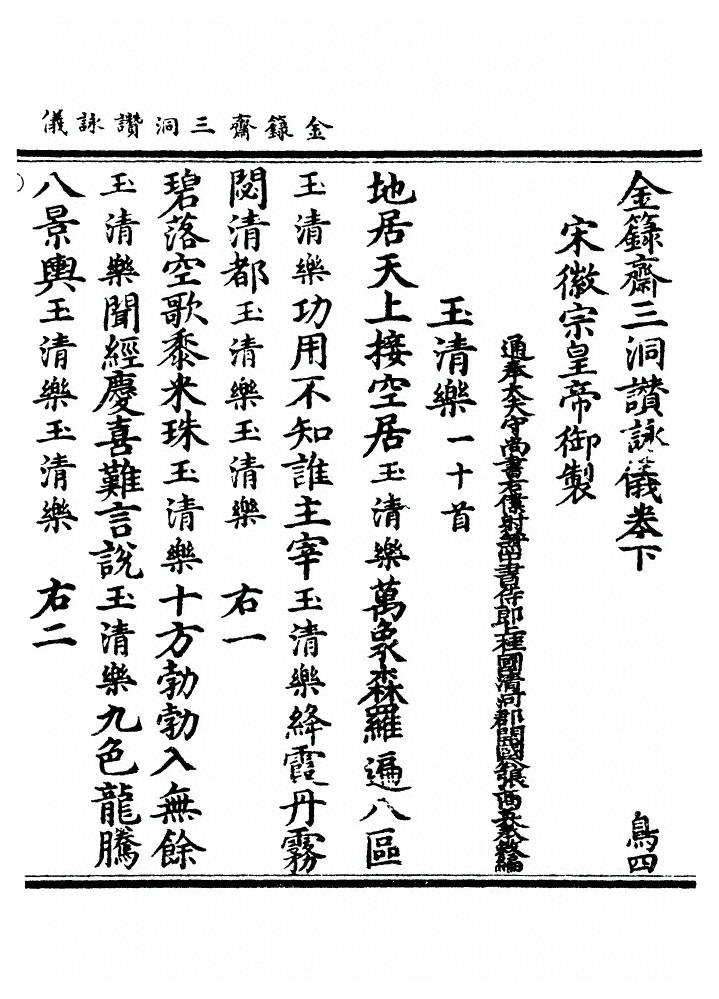 金籙齋三洞讚詠儀
金籙齋三洞讚詠儀卷下 鳥四
宋徽宗皇帝御製
通奉大夫守尚書右僕射兼中書侍郎上柱國清河郡開國公張商英奉敕編
玉清樂一十首
地居天上接空居玉清樂萬象森羅遍八區
玉清樂功用不知誰主宰玉清樂絳霞丹霧
閟清都玉清樂玉清樂 右一
碧落空歌黍米珠玉清樂十方勃勃入無餘
玉清樂聞經慶喜難言說玉清樂九色龍騰
八景輿玉清樂玉清樂 右二